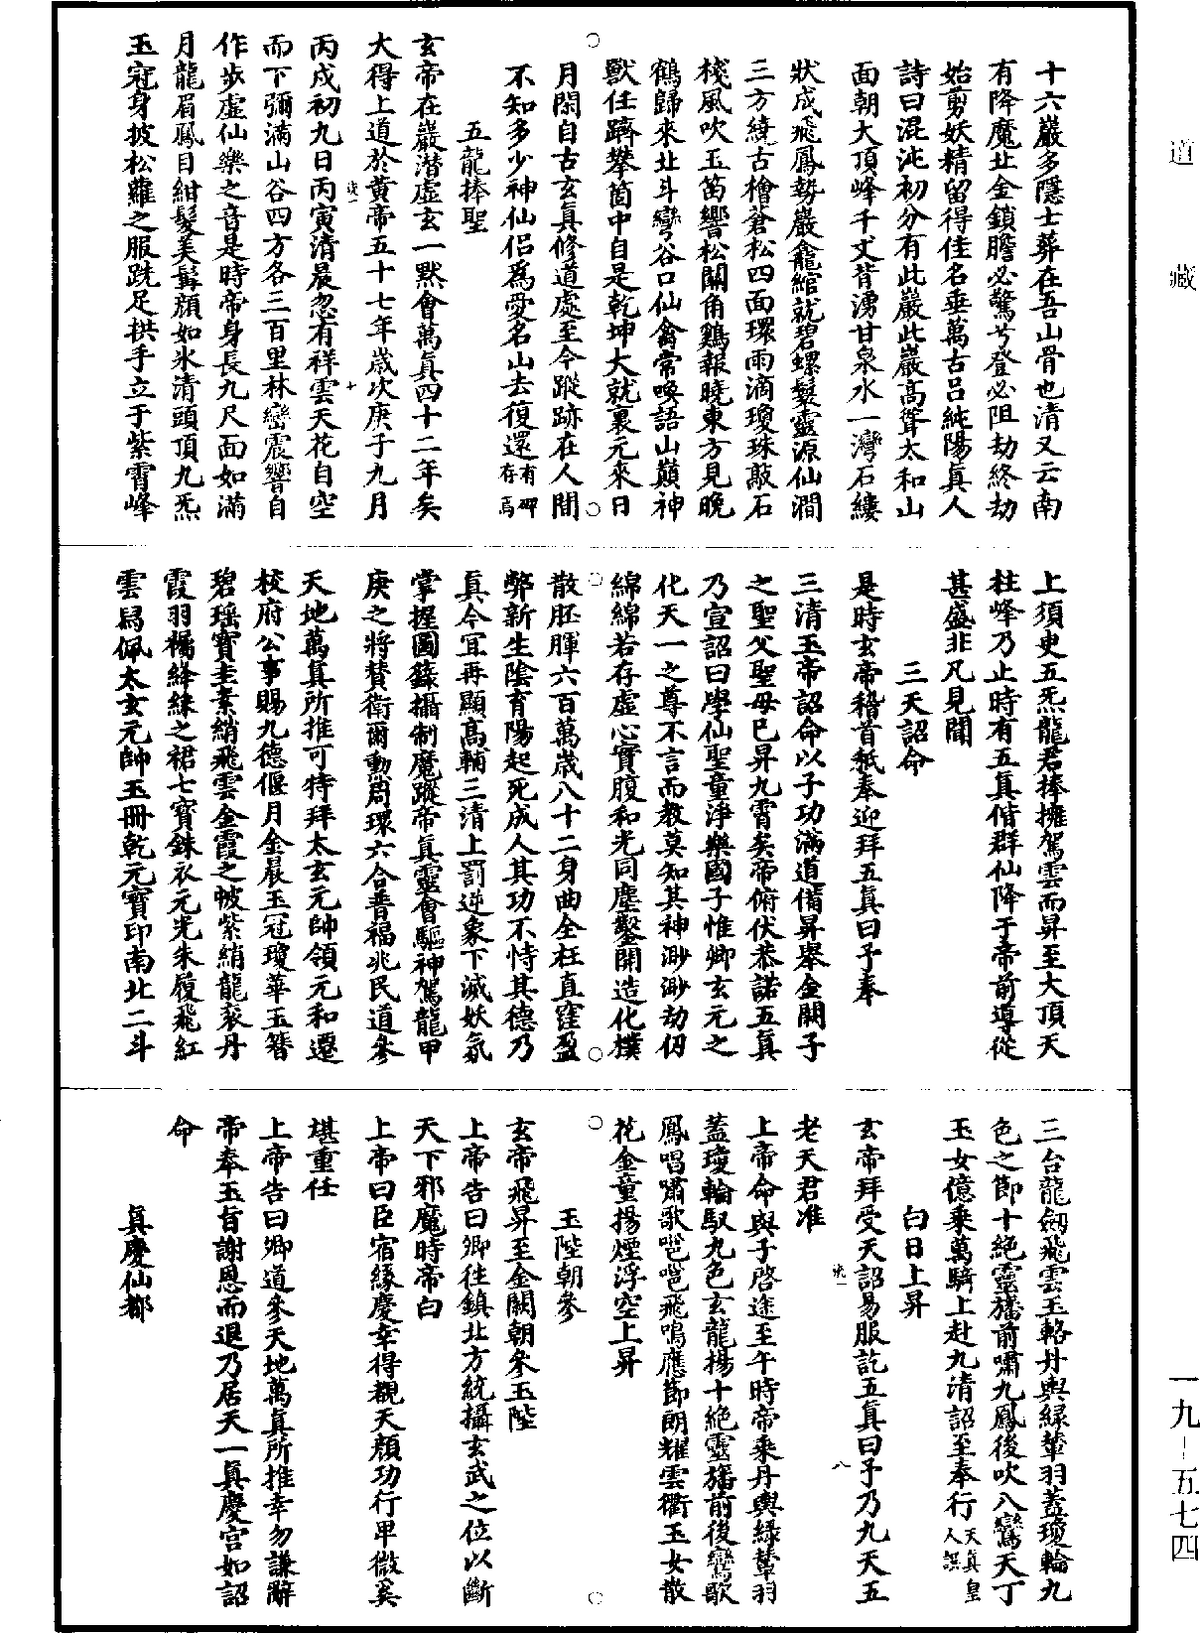 道藏
十六巖多隱士葬在吾山骨也清又云南
有降魔北金鎖膽必驚兮登必阻劫終劫
始剪妖精留得佳名垂萬古呂純陽真人
詩曰混沌初分有此巖此巖高聳太和山
面朝大頂峰千丈背湧甘泉水一灣石縷
狀成飛鳳勢巖龕綰就碧螺鬟靈源仙澗
三方繞古檜蒼松四面環雨滴瓊珠敲石
棧風吹玉笛響松關角鷄報曉東方見晚
鶴歸來北斗彎谷口仙禽常喚語山巔神
獸任躋攀箇中自是乾坤大就裏元來日
月閑自古玄真修道處至今蹤跡在人間
不知多少神仙侶爲愛名山去復還有碑存焉
五龍捧聖
玄帝在巖潛虛玄一默會萬真四十二年矣
大得上道於黃帝五十七年歲次庚子九月
丙戌初九日丙寅清晨忽有祥雲天花自空
而下彌滿山谷四方各三百里林巒震響自
作步虛仙樂之音是時帝身長九尺面如滿
月龍眉鳳目紺髮美髯顏如氷清頭頂九炁
玉冠身披松蘿之服跣足拱手立于紫霄峰
上須臾五炁龍君捧擁駕雲而昇至大頂天
柱峰乃止時有五真偕群仙降于帝前導從
甚盛非凡見聞
三天詔命
是時玄帝稽首祇奉迎拜五真曰予奉
三清玉帝詔命以子功滿道備昇舉金闕子
之聖父聖母已昇九霄矣帝俯伏恭諾五真
乃宣詔曰學仙聖童淨樂國子惟卿玄元之
化天一之尊不言而教莫知其神渺渺劫仞
綿綿若存虛心實腹和光同塵鑿開造化樸
散胚腪六百萬歲八十二身曲全枉直窪盈
弊新生陰育陽起死成人其功不恃其德乃
真今宜再顯高輔三清上罰逆象下滅妖氛
掌握圖籙攝制魔蹤帝真靈會驅神駕龍甲
庚之將贊衛爾勳周環六合普福兆民道參
天地萬真所推可特拜太玄元帥領元和遷
校府公事賜九德偃月金晨玉冠瓊華玉簪
碧瑤寶圭素綃飛雲金霞之帔紫綃龍衮丹
霞羽襡絳綵之裙七寶銖衣元光朱履飛紅
雲舄佩太玄元帥玉冊乾元寶印南北二斗
三台龍劍飛雲玉輅丹輿綠輦羽蓋瓊輪九
色之節十絕靈旛前嘯九鳳後吹八鸞天丁
玉女億乘萬騎上赴九清詔至奉行天真皇人撰
白日上昇
玄帝拜受天詔易服訖五真曰予乃九天五
老天君准
上帝命與子啓途至午時帝乘丹輿綠輦羽
蓋瓊輪馭九色玄龍揚十絕靈旛前後鸞歌
鳳唱嘯歌邕邕飛鳴應節朗耀雲衢玉女散
花金童揚煙浮空上昇
玉陛朝參
玄帝飛昇至金闕朝參玉陛
上帝告曰卿往鎮北方統攝玄武之位以斷
天下邪魔時帝白
上帝曰臣宿緣慶幸得觀天顏功行卑微奚
堪重任
上帝告曰卿道參天地萬真所推幸勿謙辭
帝奉玉旨謝恩而退乃居天一真慶宮如詔
命
真慶仙都
一九—五七四